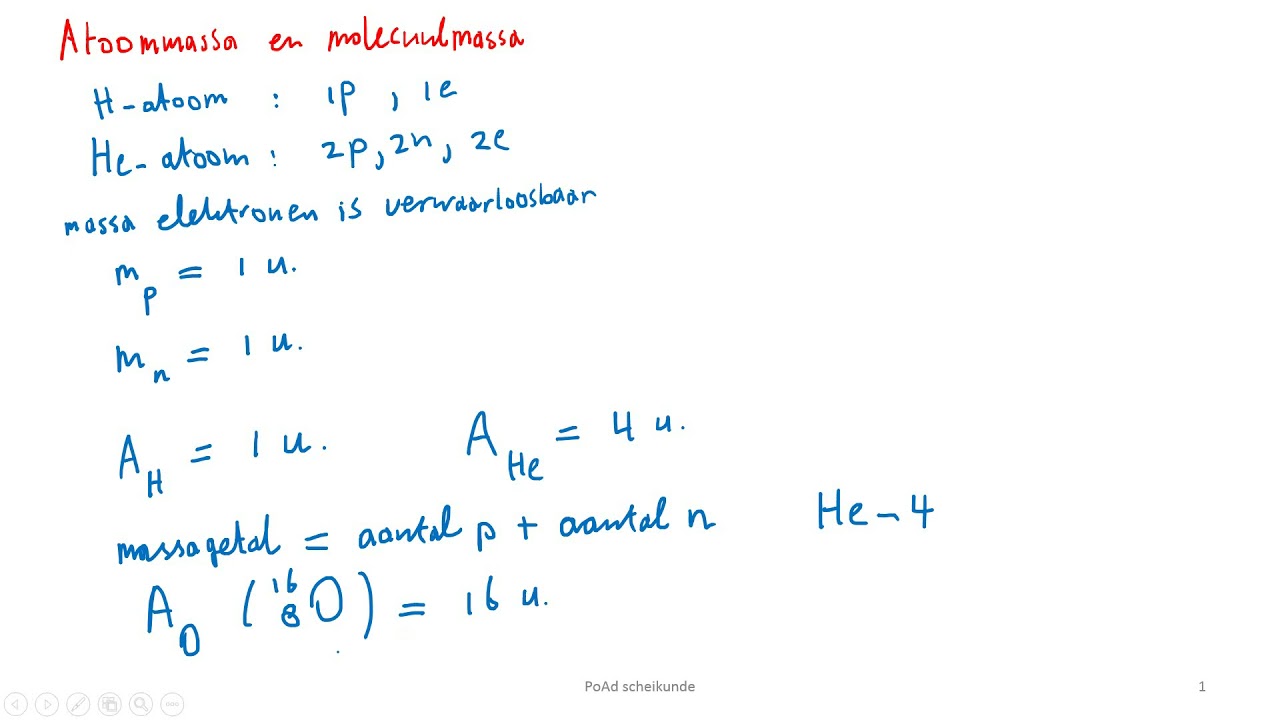 Atoommassa en molecuulmassa
H-atoom : 1p , 1e
He-atoom : 2p, 2n, 2e
massa elektronen is verwaarloosbaar
m_p = 1 u.
m_n = 1 u.
A_H = 1 u. A_He = 4 u.
massagetal = aantal p + aantal n He-4
A_O (¹⁶₈O) = 16 u.
PoAd scheikunde 1